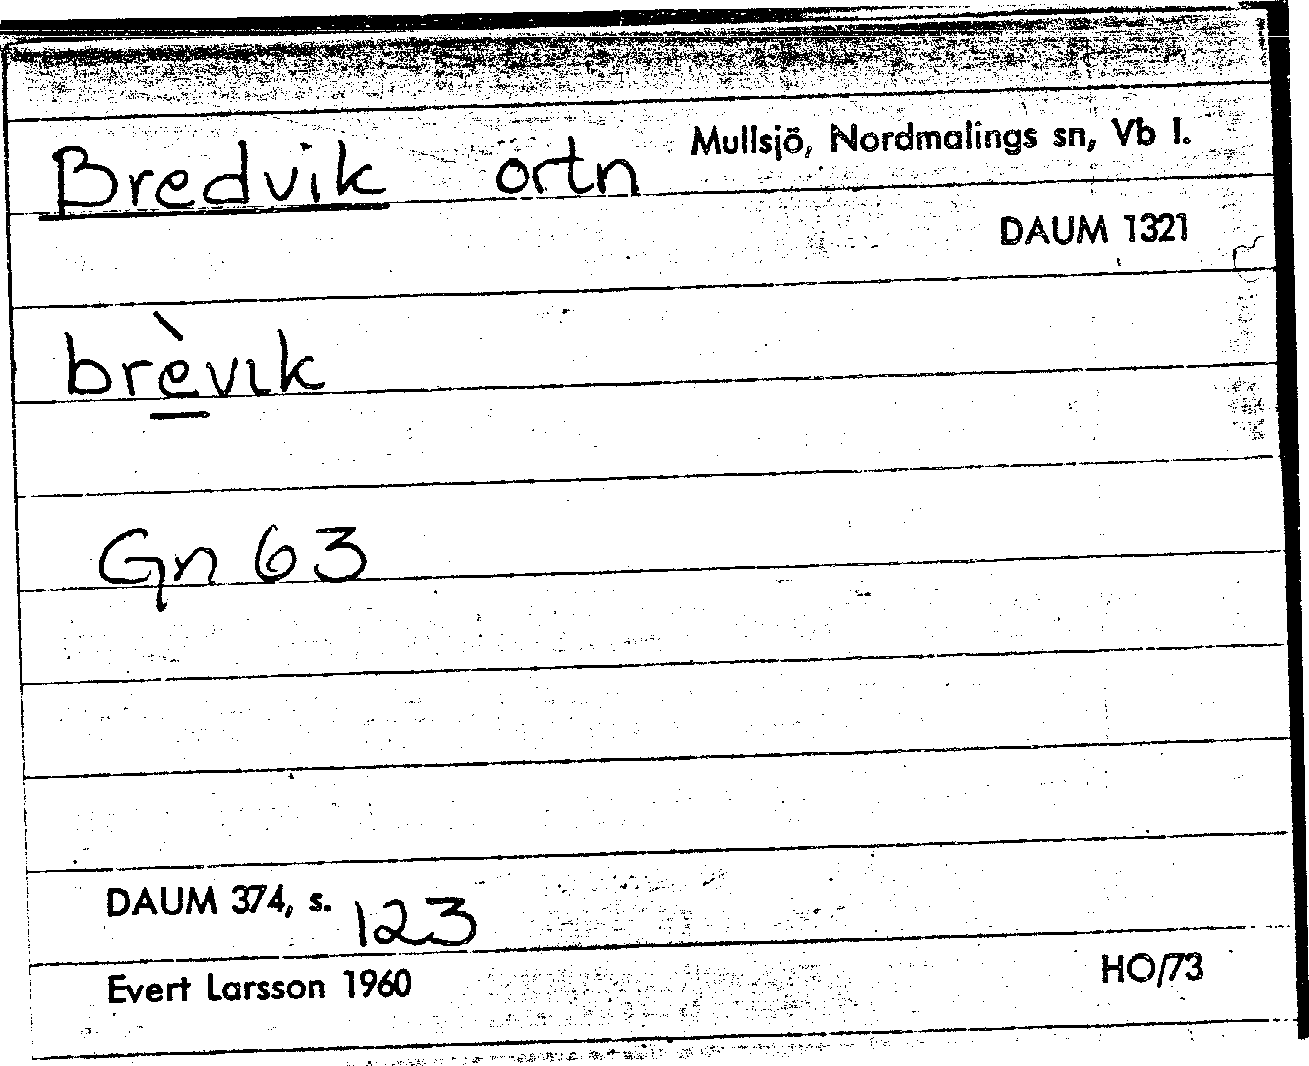 Bredvik ortn Mullsjö, Nordmalings sn, Vb l.
DAUM 1321
brèvık
Gn 63
DAUM 374, s. 123
Evert Larsson 1960 HO/73